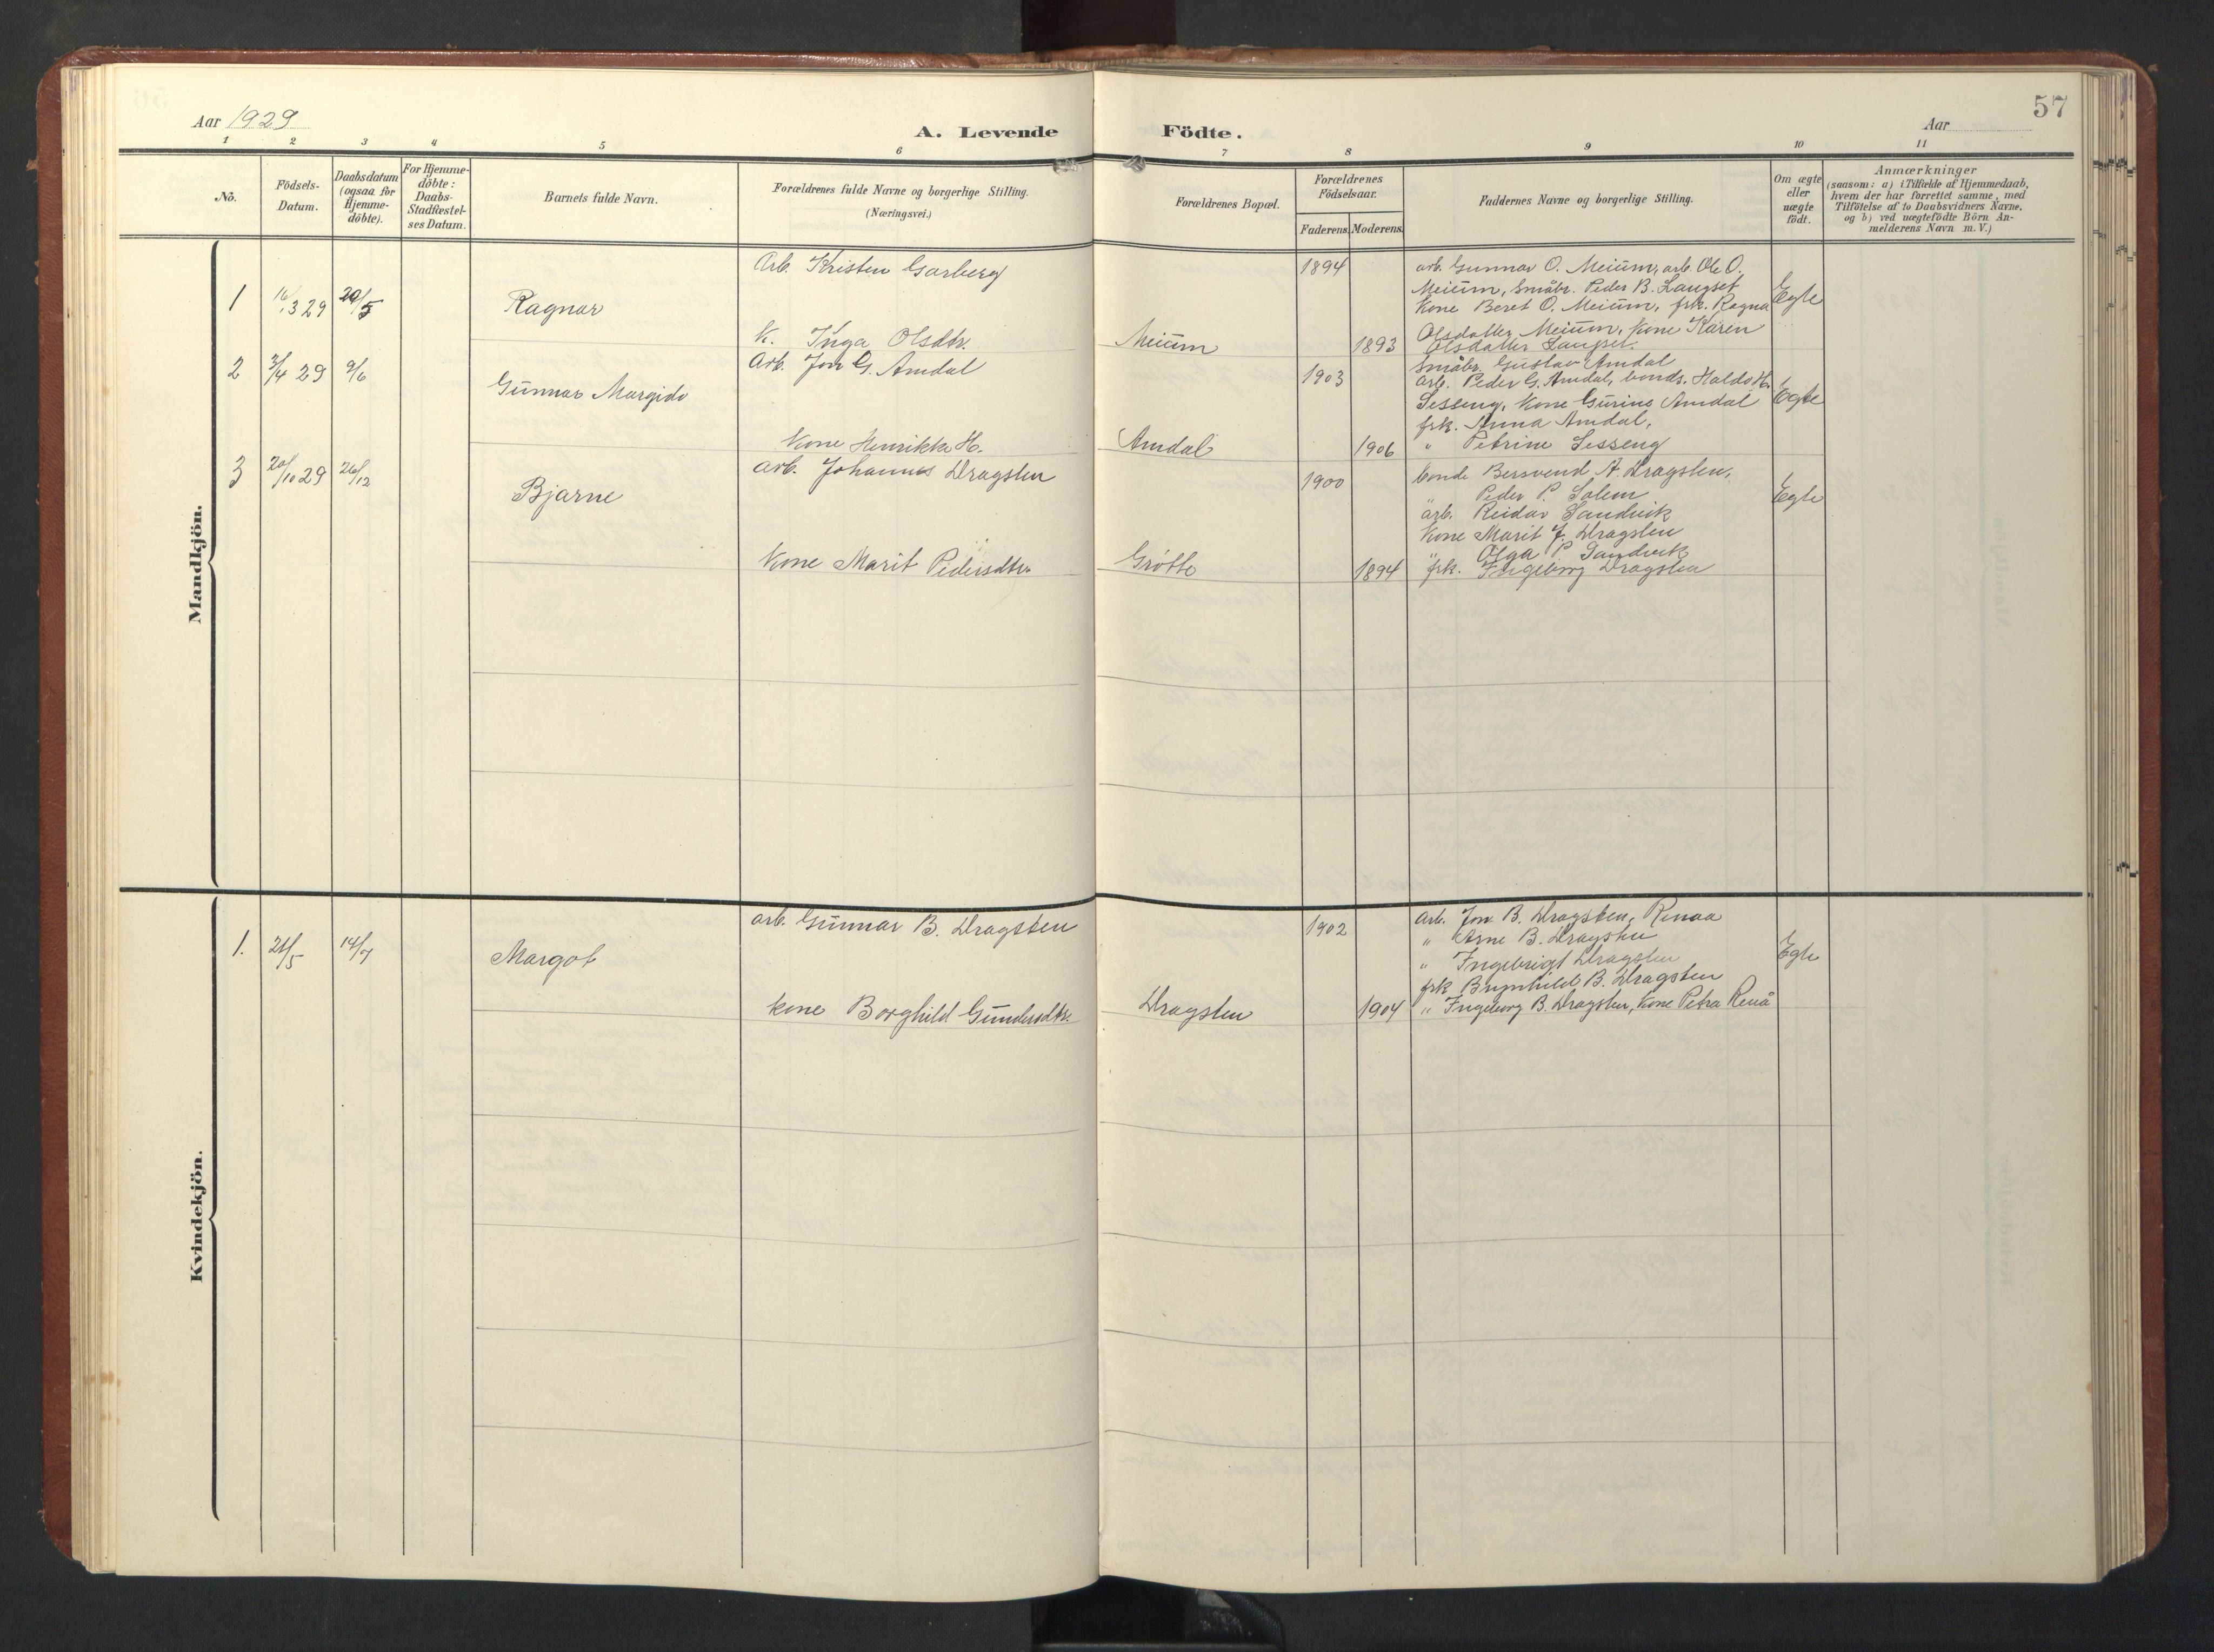 57
Aar 1929
A. Levende
Födte.
Aar
1 2 3 4 5 6 7 8 9 10 11
No.
Födsels-
Datum.
Daabsdatum
(ogsaa for
Hjemme-
döbte).
For Hjemme-
döbte:
Daabs-
Stadfæstel-
ses Datum.
Barnets fulde Navn.
Forældrenes fulde Navne og borgerlige Stilling.
(Næringsvei.)
Forældrenes Bopæl.
Forældrenes
Födselsaar.
Faderens. Moderens.
Faddernes Navne og borgerlige Stilling.
Om ægte
eller
uægte
födt.
Anmærkninger
(saasom: a) i Tilfælde af Hjemmedaab,
hvem der har forrettet samme, med
Tilföielse af to Daabsvidners Navne,
og b) ved uægtefödte Börn An-
melderens Navn m. V.)
Mandkjön.
1 16/3 29 20/5
Ragnar
Arb. Kristen Garberg
K. Inga Olsdtr.
Meium
1894
1893
arb. Gunnar O. Meium, arb. Ole O.
Meium, Småbr. Peder B. Langset
Kone Beret O. Meium, frk. Ragna
Olsdatter Meium, Kone Karen
Olsdatter Langset.
Egte
2 3/4 29 9/6
Gunnar Margido
Arb. Jon G. Amdal
Kone Henrikke H.
Amdal
1903
1906
Småbr. Gustav Amdal
arb. Peder G. Amdal, bonds. Haldo H.
Sesseng, Kone Gurine Amdal
frk. Anna Amdal,
" Petrine Sesseng
Egte
3 20/10 29 26/12
Bjarne
arb. Johannes Dragsten
Kone Marit Pedersdtr.
Grøtte
1900
1894
bonde Bersvend A. Dragsten,
" Peder P. Solem
arb. Reidar Sandvik
Kone Marit J. Dragsten
" Olga P. Sandvik
frk. Ingeborg Dragsten
Egte
Kvindekjön.
1. 21/5 14/7
Margot
arb. Gunnar B. Dragsten
Kone Borghild Gundersdtr.
Dragsten
1902
1904
Arb. Jon B. Dragsten, Renaa
" Arne B. Dragsten
" Ingebrigt Dragsten
frk Brynhild B. Dragsten
" Ingeborg B. Dragsten, Kone Petra Renå
Egte